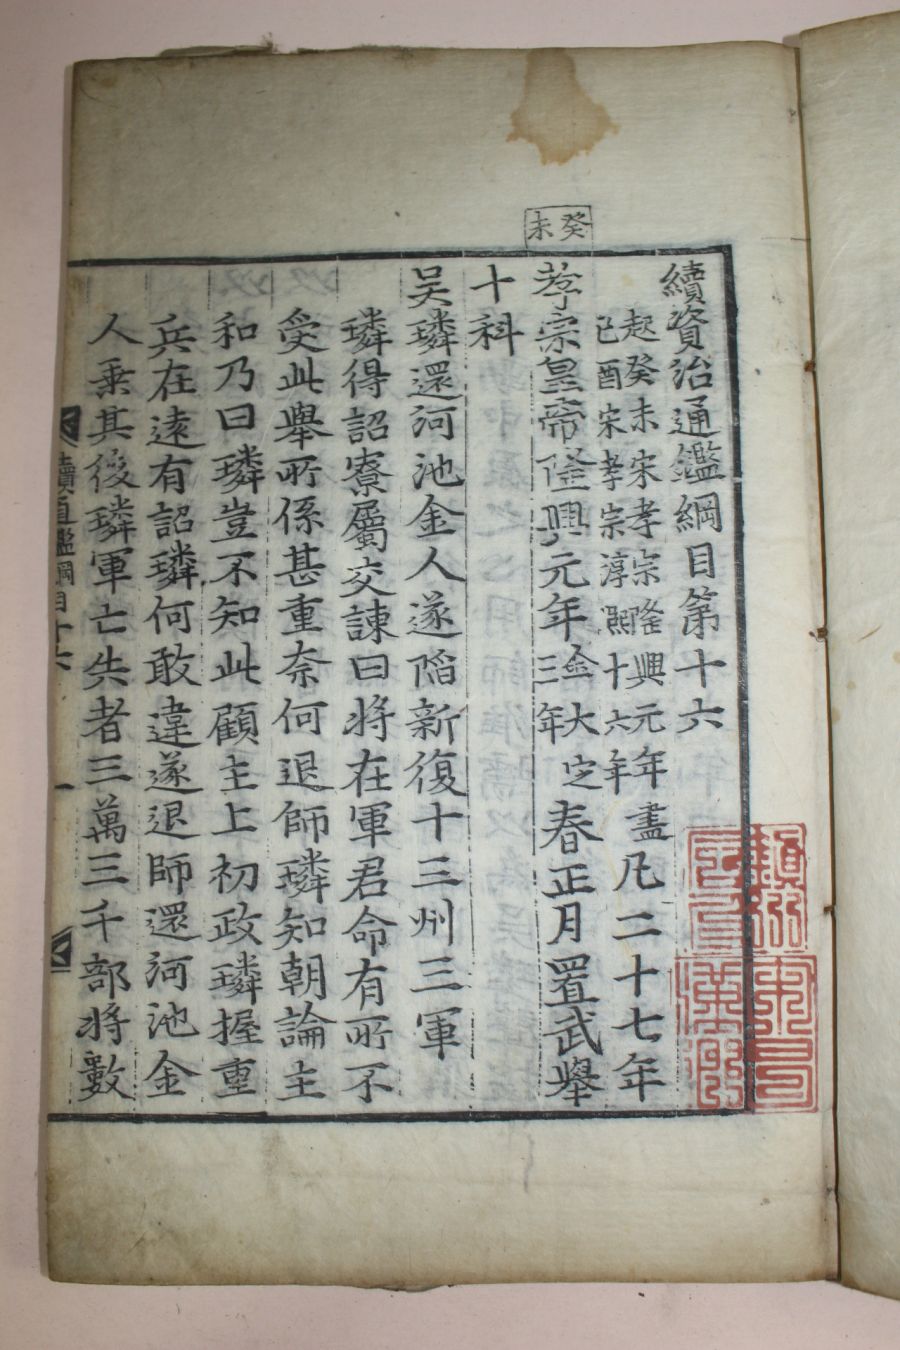 癸未
續資治通鑑綱目第十六
起癸未宋孝宗隆興元年盡
己酉宋孝宗淳熙十六年
凡二十七年
孝宗皇帝隆興元年
金大定
三年
春正月置武舉
十科
吳璘還河池金人遂陷新復十三州三軍
璘得詔寮屬交諫曰將在軍君命有所不
受此舉所係甚重奈何退師璘知朝論主
和乃曰璘豈不知此顧主上初政璘握重
兵在遠有詔璘何敢違遂退師還河池金
人乗其後璘軍亡失者三萬三千部將數
續通鑑綱目十六
一